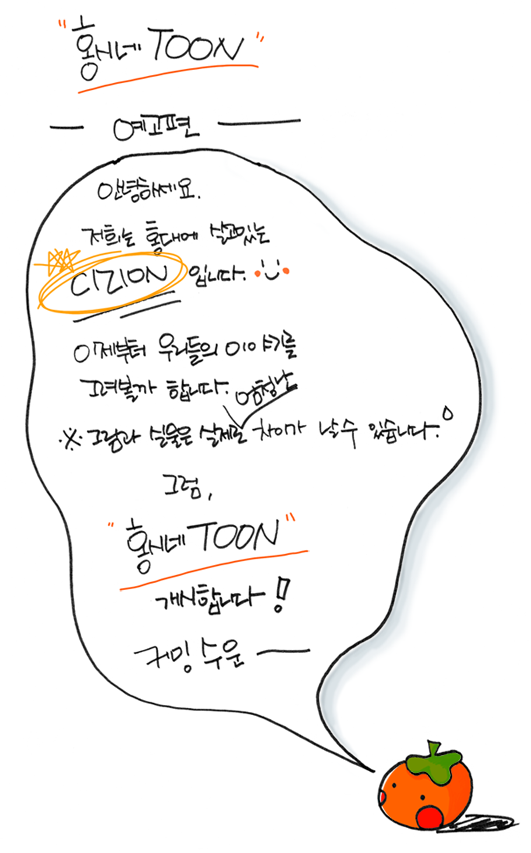 "홍시네 TOON"
— 예고편 —
안녕하세요.
저희는 홍대에 살고있는
CIZION 입니다.
이제부터 우리들의 이야기를
그려볼까 합니다.
엄청난
※ 그림과 실물은 실제로 차이가 날 수 있습니다.
그럼,
"홍시네 TOON"
개시합니다!
커밍 수운 —